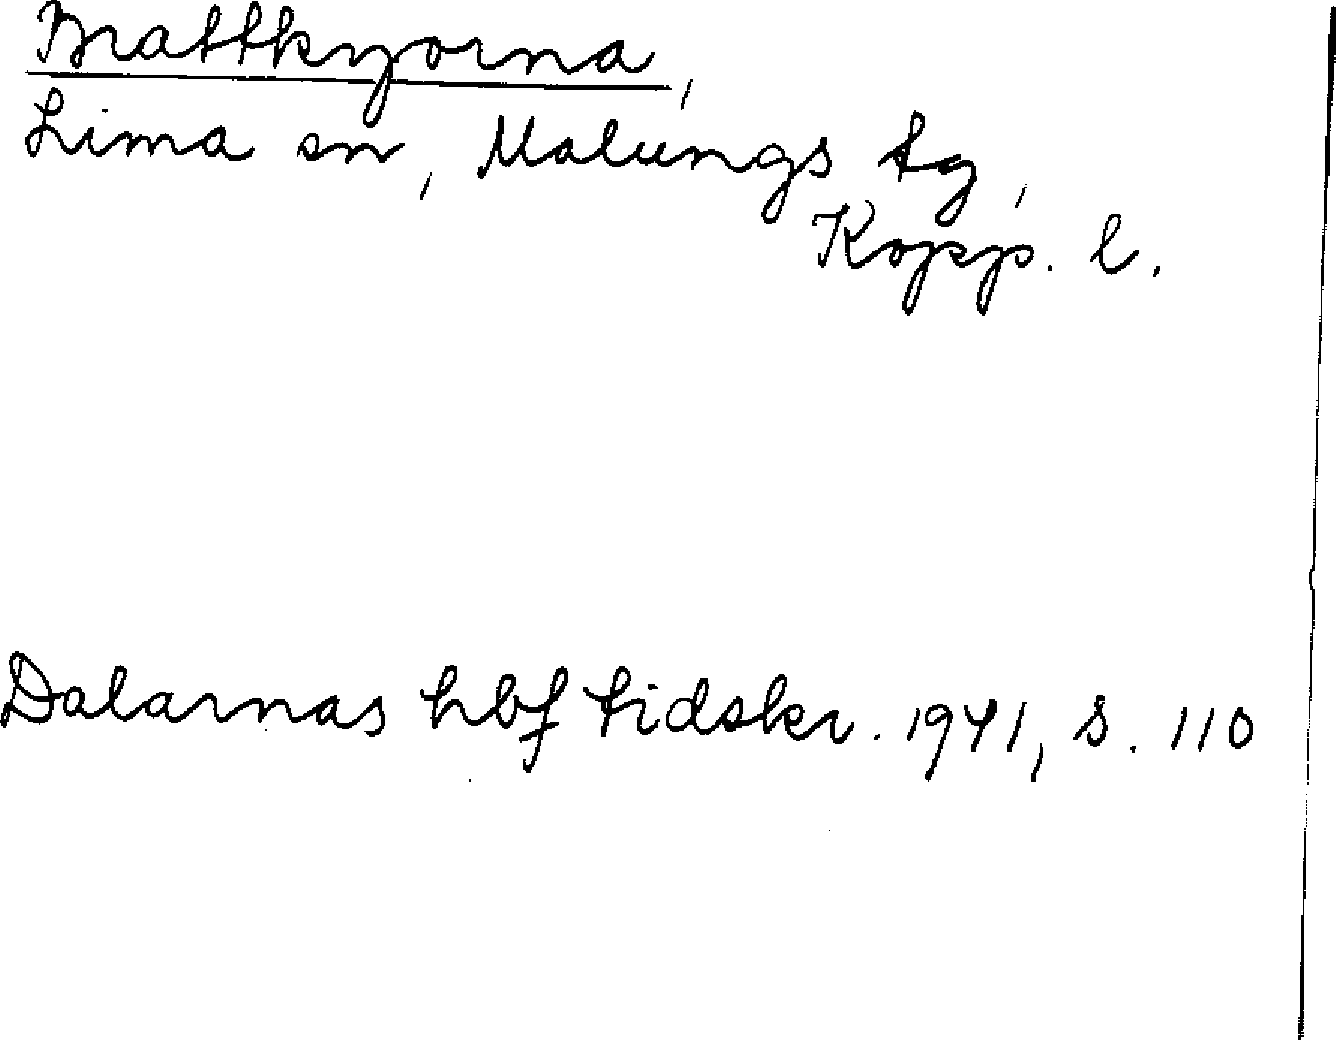 Brattkyorna,
Lima sn, Malungs tg,
Kopp. l.
Dalarnas hbf tidskr. 1941, s. 110